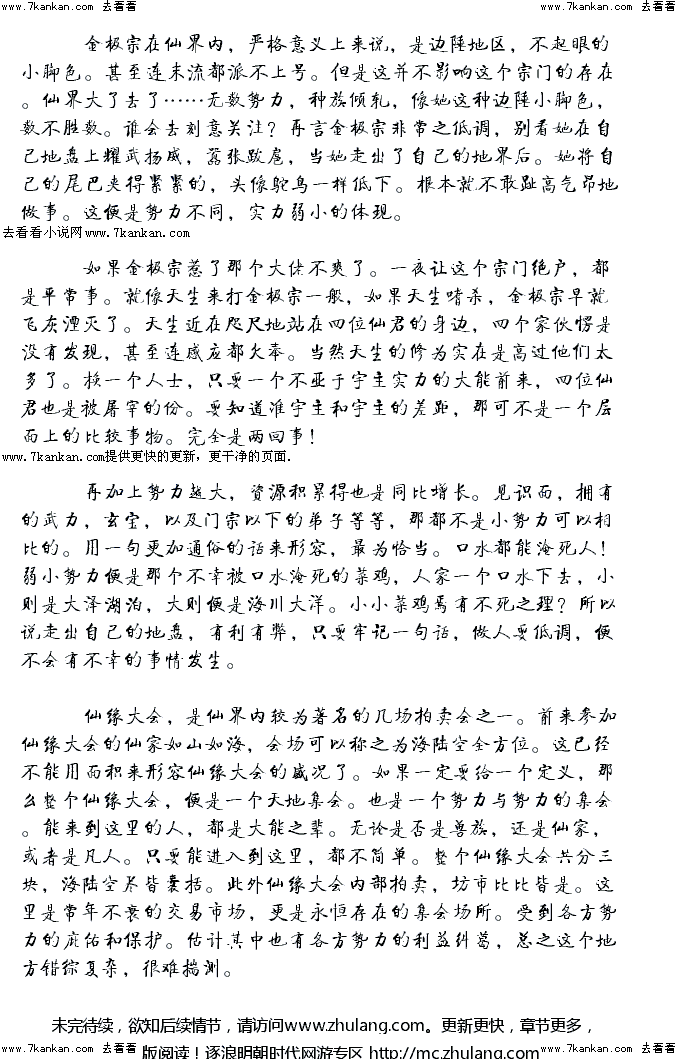 www.7kankan.com 去看看 www.7kankan.com 去看看
金极宗在仙界内，严格意义上来说，是边陲地区，不起眼的
小脚色。甚至连末流都派不上号。但是这并不影响这个宗门的存在
。仙界大了去了……无数势力，种族倾轧，像她这种边陲小脚色，
数不胜数。谁会去刻意关注？再言金极宗非常之低调，别看她在自
己地盘上耀武扬威，嚣张跋扈，当她走出了自己的地界后。她将自
己的尾巴夹得紧紧的，头像鸵鸟一样低下。根本就不敢趾高气昂地
做事。这便是势力不同，实力弱小的体现。
去看看小说网www.7kankan.com
如果金极宗惹了那个大佬不爽了。一夜让这个宗门绝户，都
是平常事。就像天生来打金极宗一般，如果天生嗜杀，金极宗早就
飞灰湮灭了。天生近在咫尺地站在四位仙君的身边，四个家伙愣是
没有发现，甚至连感应都欠奉。当然天生的修为实在是高过他们太
多了。换一个人士，只要一个不亚于宇主实力的大能前来，四位仙
君也是被屠宰的份。要知道准宇主和宇主的差距，那可不是一个层
面上的比较事物。完全是两回事！
www.7kankan.com提供更快的更新，更干净的页面.
再加上势力越大，资源积累得也是同比增长。见识面，拥有
的武力，玄宝，以及门宗以下的弟子等等，那都不是小势力可以相
比的。用一句更加通俗的话来形容，最为恰当。口水都能淹死人！
弱小势力便是那个不幸被口水淹死的菜鸡，人家一个口水下去，小
则是大泽湖泊，大则便是海川大洋。小小菜鸡焉有不死之理？所以
说走出自己的地盘，有利有弊，只要牢记一句话，做人要低调，便
不会有不幸的事情发生。
仙缘大会，是仙界内较为著名的几场拍卖会之一。前来参加
仙缘大会的仙家如山如海，会场可以称之为海陆空全方位。这已经
不能用面积来形容仙缘大会的盛况了。如果一定要给一个定义，那
么整个仙缘大会，便是一个天地集会。也是一个势力与势力的集会
。能来到这里的人，都是大能之辈。无论是否是兽族，还是仙家，
或者是凡人。只要能进入到这里，都不简单。整个仙缘大会共分三
块，海陆空界皆囊括。此外仙缘大会内部拍卖，坊市比比皆是。这
里是常年不衰的交易市场，更是永恒存在的集会场所。受到各方势
力的庇佑和保护。估计其中也有各方势力的利益纠葛，总之这个地
方错综复杂，很难揣测。
未完待续，欲知后续情节，请访问www.zhulang.com。更新更快，章节更多，
版阅读！逐浪明朝时代网游专区 http://mc.zhulang.com
www.7kankan.com 去看看 www.7kankan.com 去看看